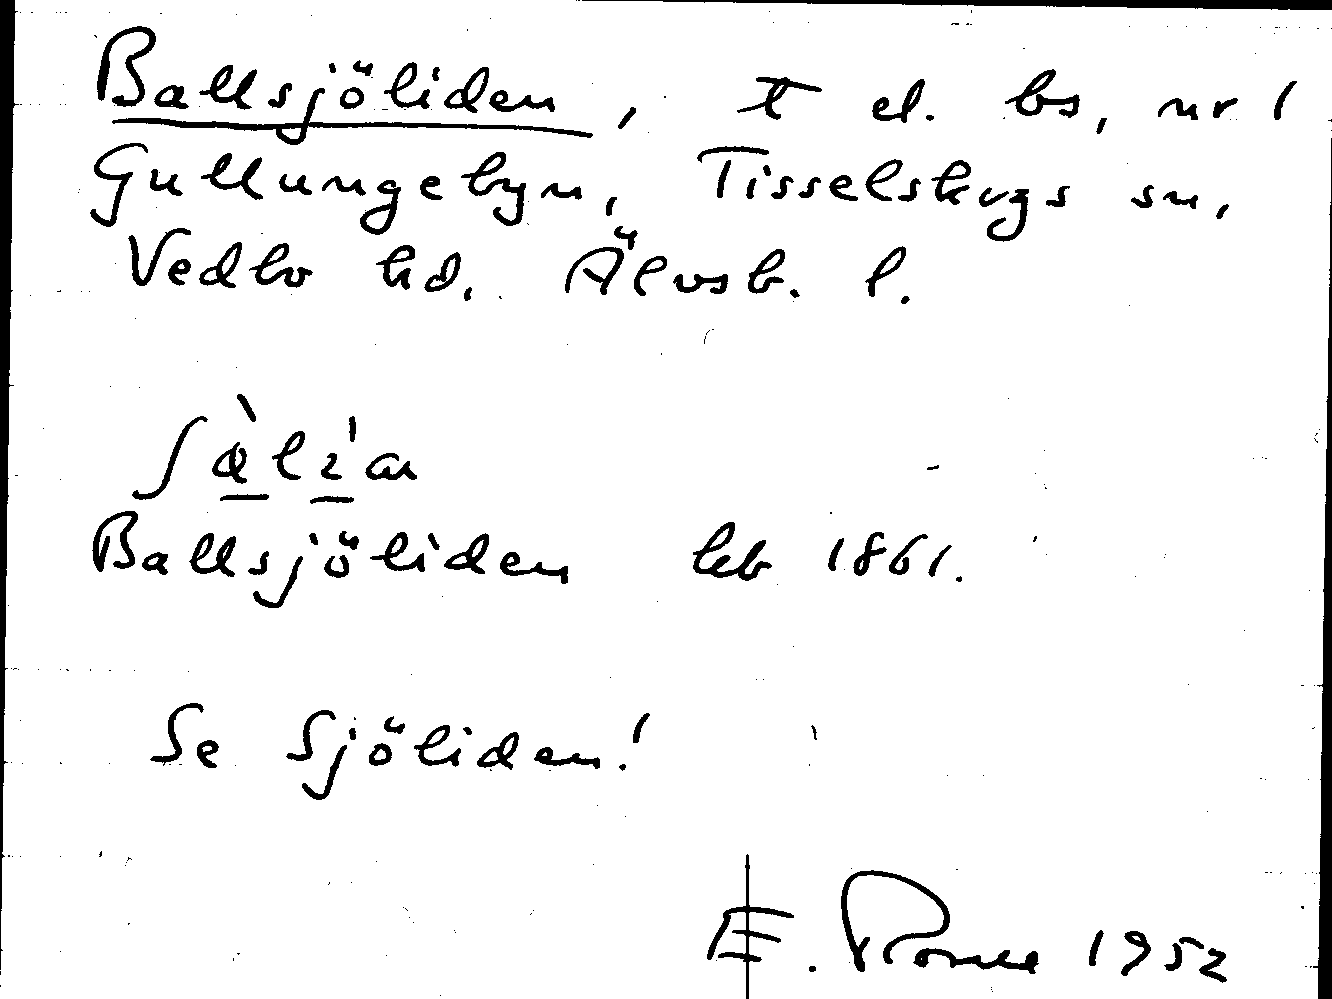 Ballsjöliden, t el. bs, nr 1
Gullungebyn, Tisselskogs sn,
Vedbo hd. Älvsb. l.
Ballsjöliden lkb 1861.
Se Sjöliden!
E. 1952